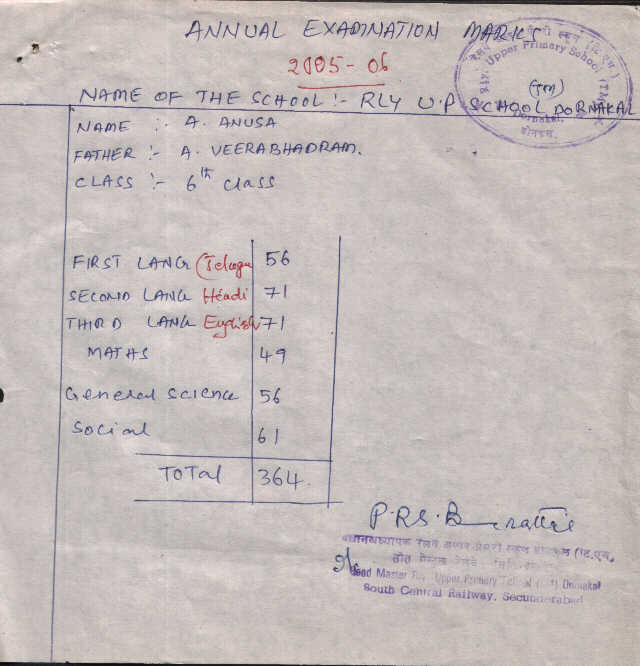 ANNUAL EXAMINATION MARKS
2005-06
NAME OF THE SCHOOL :- RLY U.P SCHOOL (TM) DORNAKAL
Upper Primary School
Dornakal.
NAME :- A. ANUSA
FATHER :- A. VEERABHADRAM.
CLASS :- 6th class
FIRST LANG (Telugu 56
SECOND LANG Hindi 71
THIRD LANG English 71
MATHS 49
General Science 56
Social 61
Total 364.
P.R.S.
Head Master Rly. Upper Primary School Dornakal
South Central Railway, Secunderabad